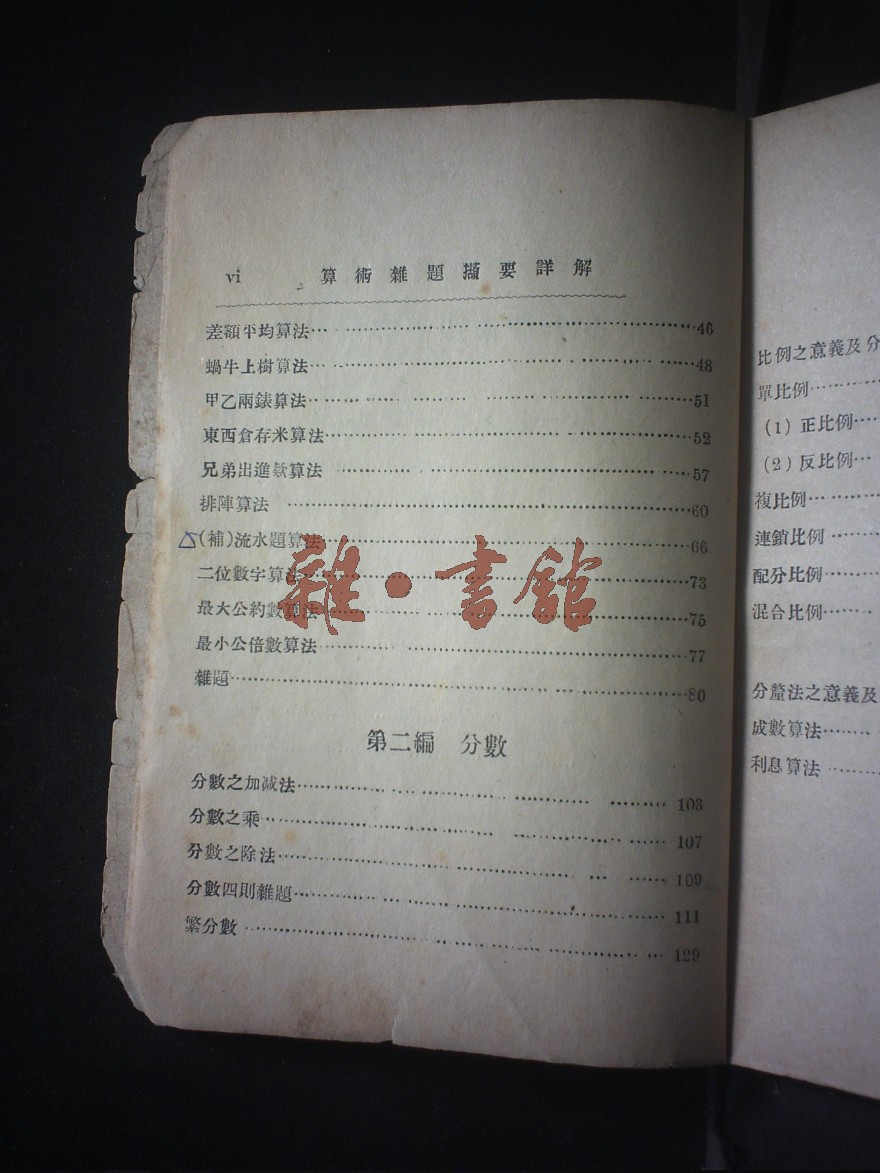 vi 算術雜題擷要詳解
差額平均算法…………………………46
蝸牛上樹算法…………………………48
甲乙兩錶算法…………………………51
東西倉存米算法…………………………52
兄弟出進款算法…………………………57
排陣算法…………………………60
△(補)流水題算法…………………………66
二位數字算法…………………………73
最大公約數算法…………………………75
最小公倍數算法…………………………77
雜題…………………………80
第二編 分數
分數之加減法…………………………103
分數之乘…………………………107
分數之除法…………………………109
分數四則雜題…………………………111
繁分數…………………………129
雜·書館
比例之意義及分
單比例………
(1)正比例……
(2)反比例……
複比例………
連鎖比例………
配分比例………
混合比例………
分釐法之意義及
成數算法………
利息算法………